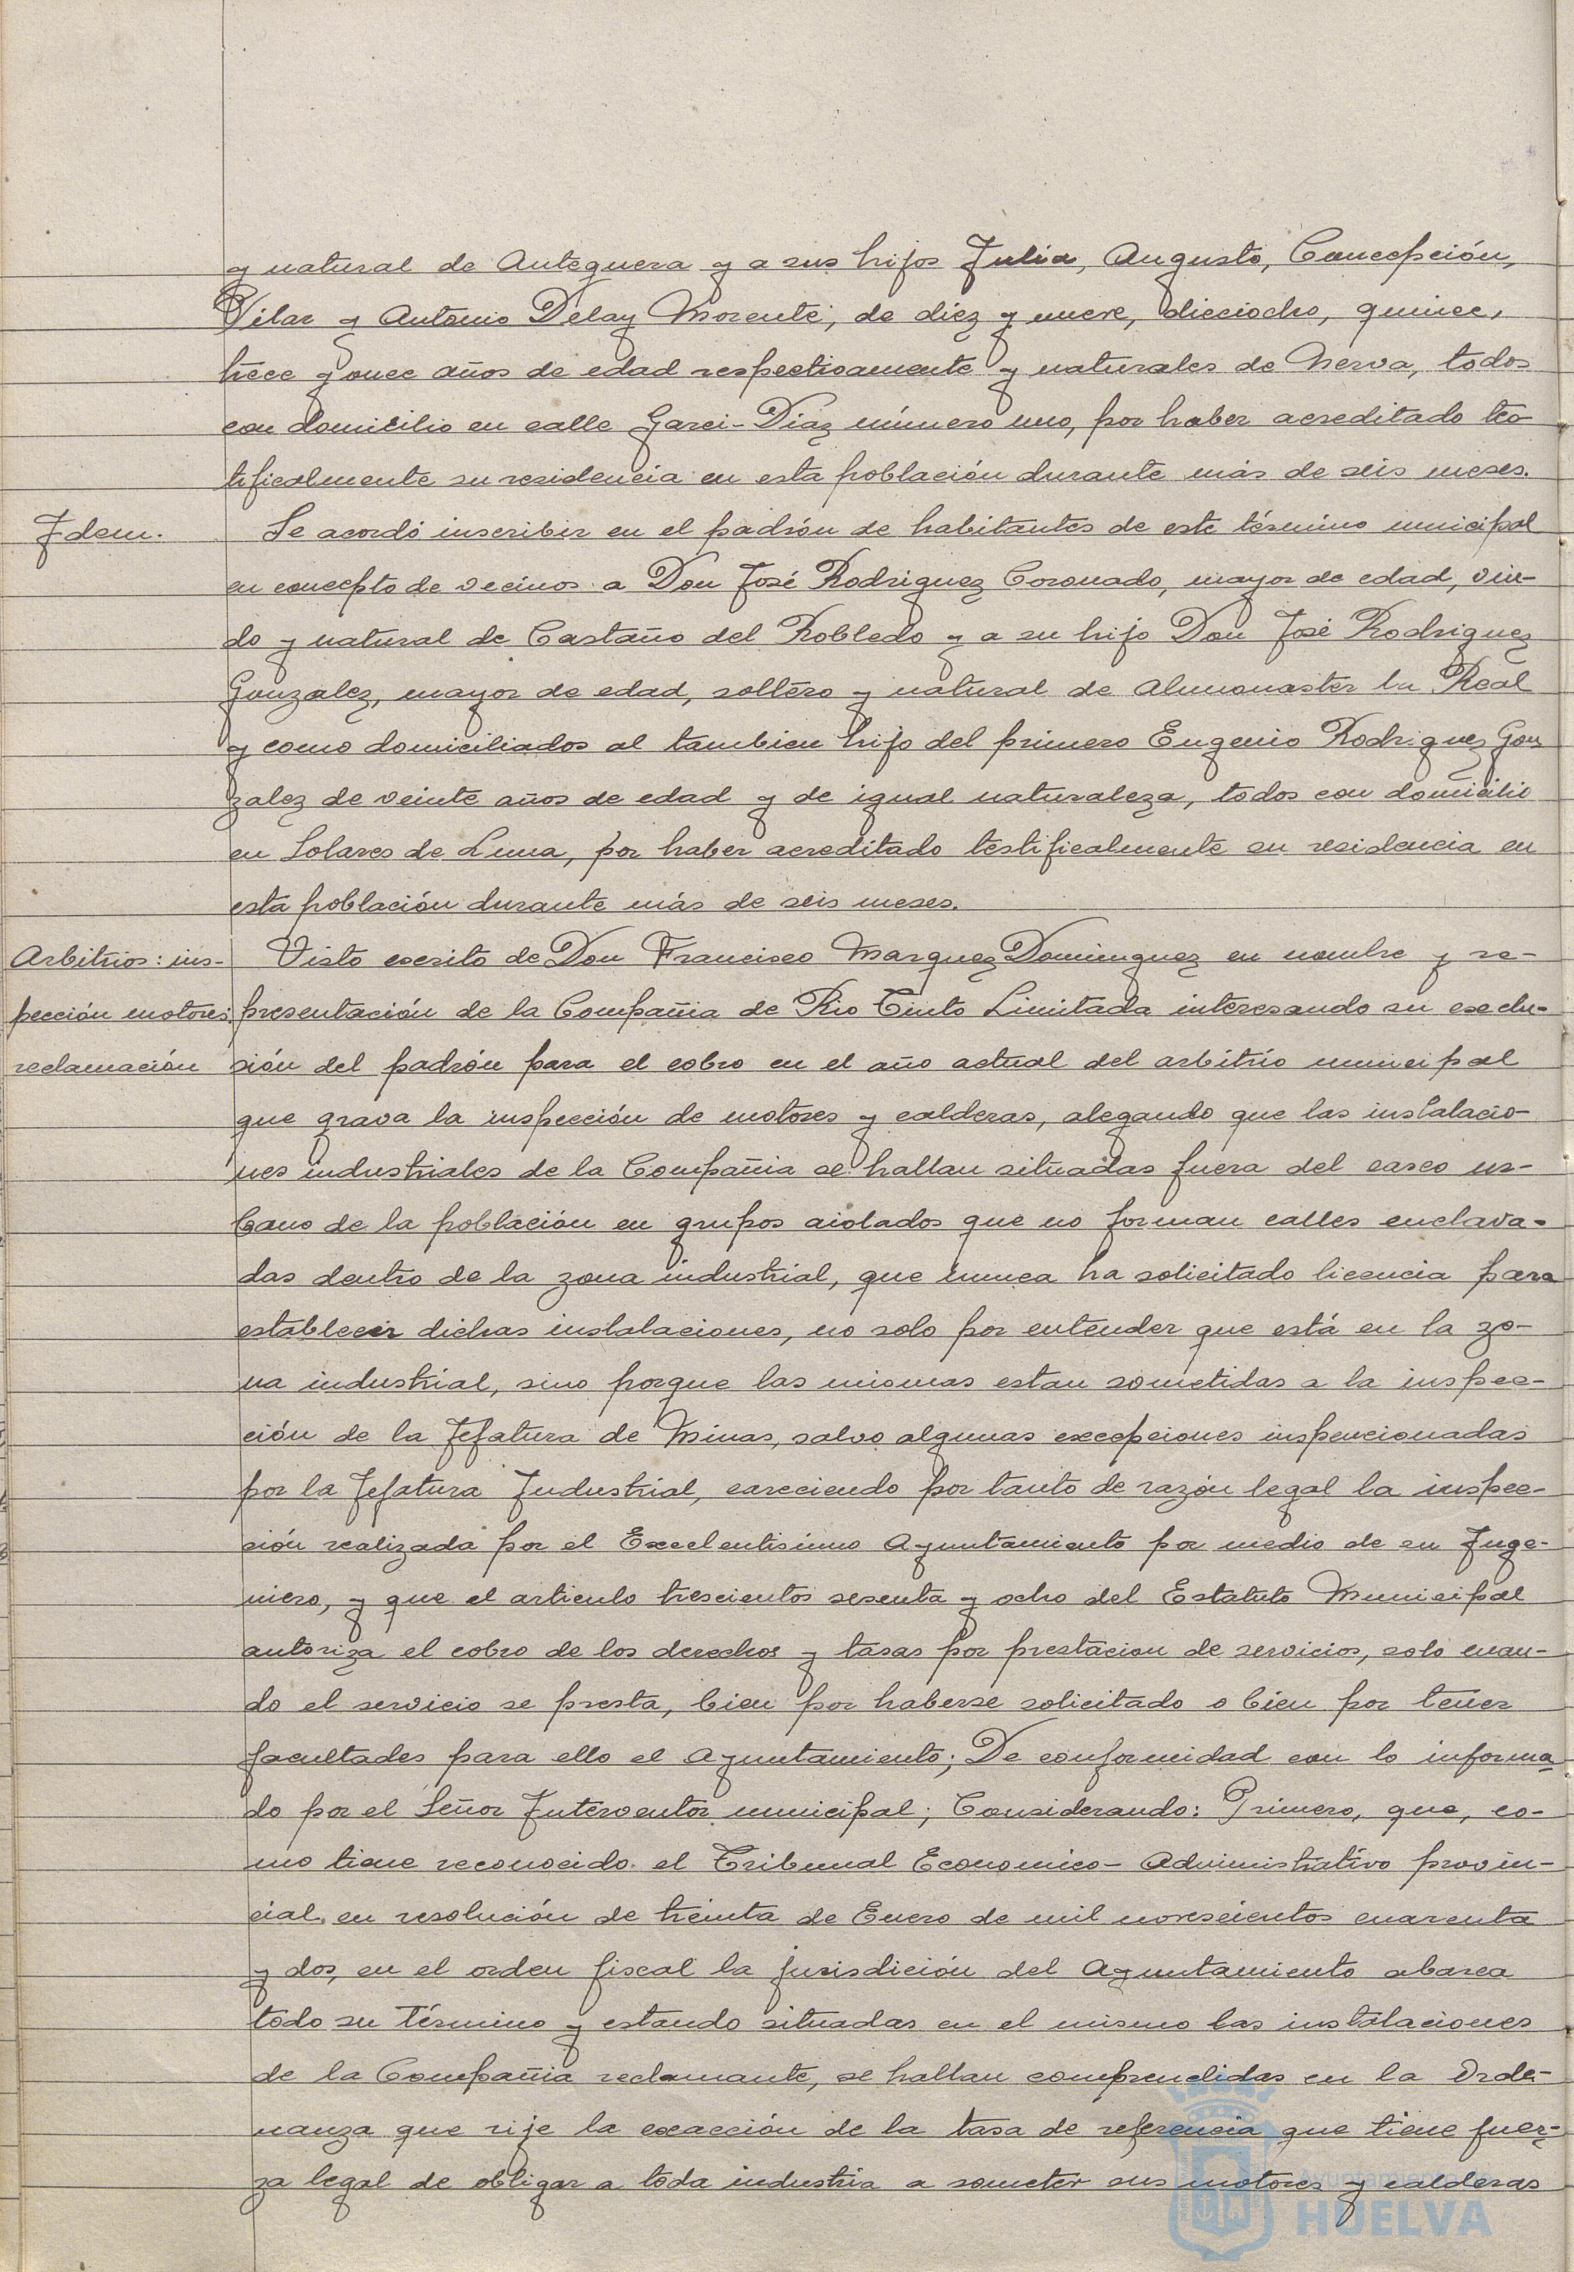 y natural de Antequera y a sus hijos Julia, Augusto, Concepción,
Pilar y Antonio Delay Morente, de diez y nueve, dieciocho, quince,
trece y once años de edad respectivamente y naturales de Nerva, todos
con domicilio en calle Garci-Díaz número uno, por haber acreditado tes-
tificalmente su residencia en esta población durante más de seis meses.
Idem.
Se acordó inscribir en el padrón de habitantes de este término municipal
en concepto de vecinos a Don José Rodriguez Coronado, mayor de edad, viu-
do y natural de Castaño del Robledo y a su hijo Don José Rodriguez
Gonzalez, mayor de edad, soltero y natural de Almonaster la Real
y como domiciliados al tambien hijo del primero Eugenio Rodriguez Gon
zalez de veinte años de edad y de igual naturaleza, todos con domicilio
en Solares de Luna, por haber acreditado testificalmente su residencia en
esta población durante más de seis meses.
Arbitrios: ins-
pección motores.
reclamación
Visto escrito de Don Francisco Marquez Dominguez en nombre y re-
presentación de la Compañia de Rio Tinto Limitada interesando su exclu-
sión del padrón para el cobro en el año actual del arbitrio municipal
que grava la inspección de motores y calderas, alegando que las instalacio-
nes industriales de la Compañia se hallan situadas fuera del casco ur-
bano de la población en grupos aislados que no forman calles enclava-
das dentro de la zona industrial, que nunca ha solicitado licencia para
establecer dichas instalaciones, no solo por entender que está en la zo-
na industrial, sino porque las mismas estan sometidas a la inspec-
ción de la Jefatura de Minas, salvo algunas excepciones inspencionadas
por la Jefatura Industrial, careciendo por tanto de razón legal la inspec-
ción realizada por el Excelentisimo Ayuntamiento por medio de su Inge-
niero, y que el articulo trescientos sesenta y ocho del Estatuto Municipal
autoriza el cobro de los derechos y tasas por prestacion de servicios, solo cuan-
do el servicio se presta, bien por haberse solicitado o bien por tener
facultades para ello el Ayuntamiento; De conformidad con lo informa-
do por el Señor Interventor municipal; Considerando: Primero, que, co-
mo tiene reconocido el Tribunal Economico-Administrativo provin-
cial, en resolución de treinta de Enero de mil novescientos cuarenta
y dos, en el orden fiscal la jurisdición del Ayuntamiento abarca
todo su término y estando situadas en el mismo las instalaciones
de la Compañia reclamante, se hallan comprendidas en la Orde-
nanza que rije la exacción de la tasa de referencia que tiene fuer-
za legal de obligar a toda industria a someter sus motores y calderas
Ayuntamiento de
HUELVA